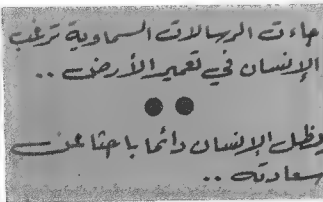 جاءت الرسالات السماوية ترغب
الإنسان في تعمير الأرض ..
ويظل الإنسان دائما باحثا عن
سعادته ..